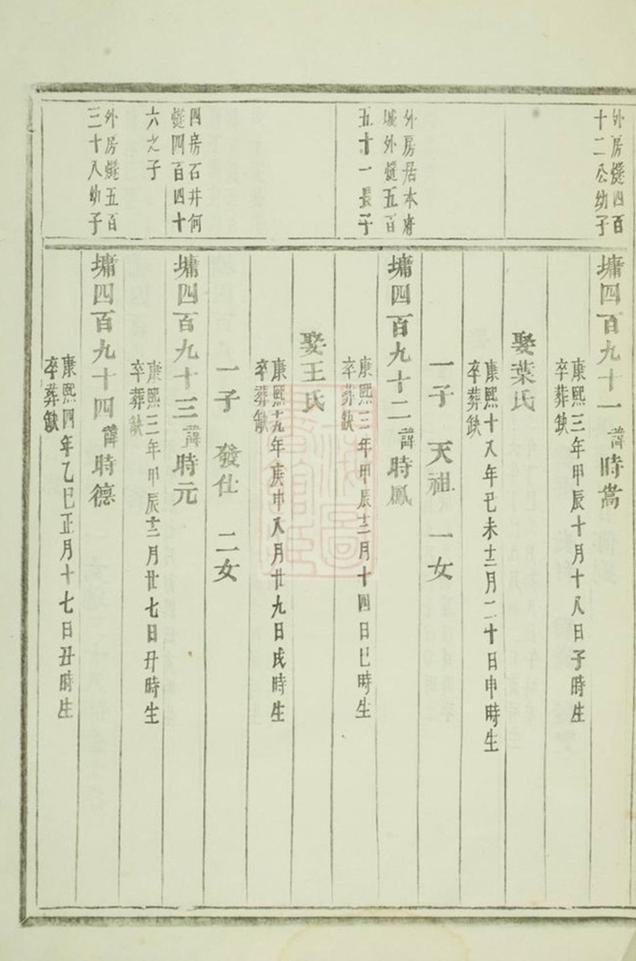 外房𤏲四百
十二公幼子
墉四百九十一諱時嵩
康熙三年甲辰十月十八日子時生
卒葬缺
娶葉氏
康熙十八年己未十二月二十日申時生
卒葬缺
一子　天祖　一女
外房居本府
城外𤏲五百
五十一長子
墉四百九十二諱時鳳
康熙三年甲辰十二月十四日巳時生
卒葬缺
娶王氏
康熙十九年庚申八月廿九日戌時生
卒葬缺
一子　發仕　二女
四房石井何
𤏲四百四十
六之子
墉四百九十三諱時元
康熙三年甲辰十二月廿七日丑時生
卒葬缺
外房𤏲五百
三十八幼子
墉四百九十四諱時德
康熙四年乙巳正月十七日丑時生
卒葬缺